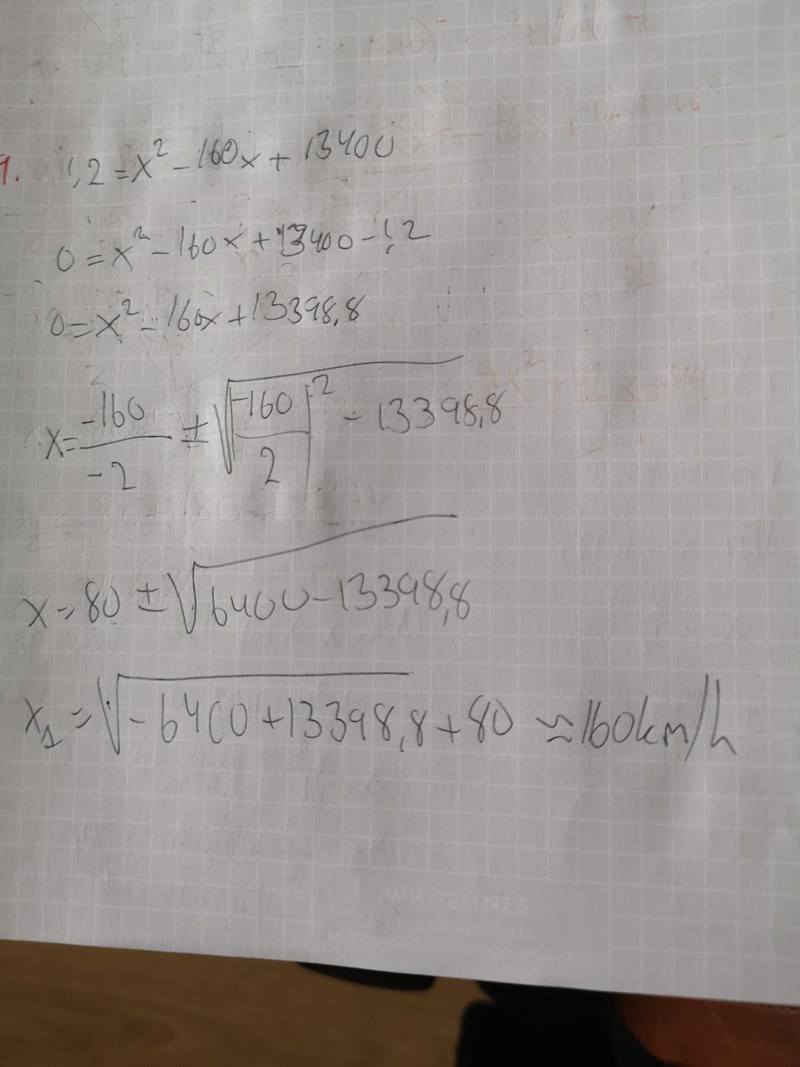 1. 1,2 = x² - 160x + 13400
0 = x² - 160x + 13400 - 1,2
0 = x² - 160x + 13398,8
x = -160/-2 ± √(-160/2)² - 13398,8
x = 80 ± √6400 - 13398,8
x₁ = √-6400 + 13398,8 + 80 ≈ 160km/h
WHITELINES